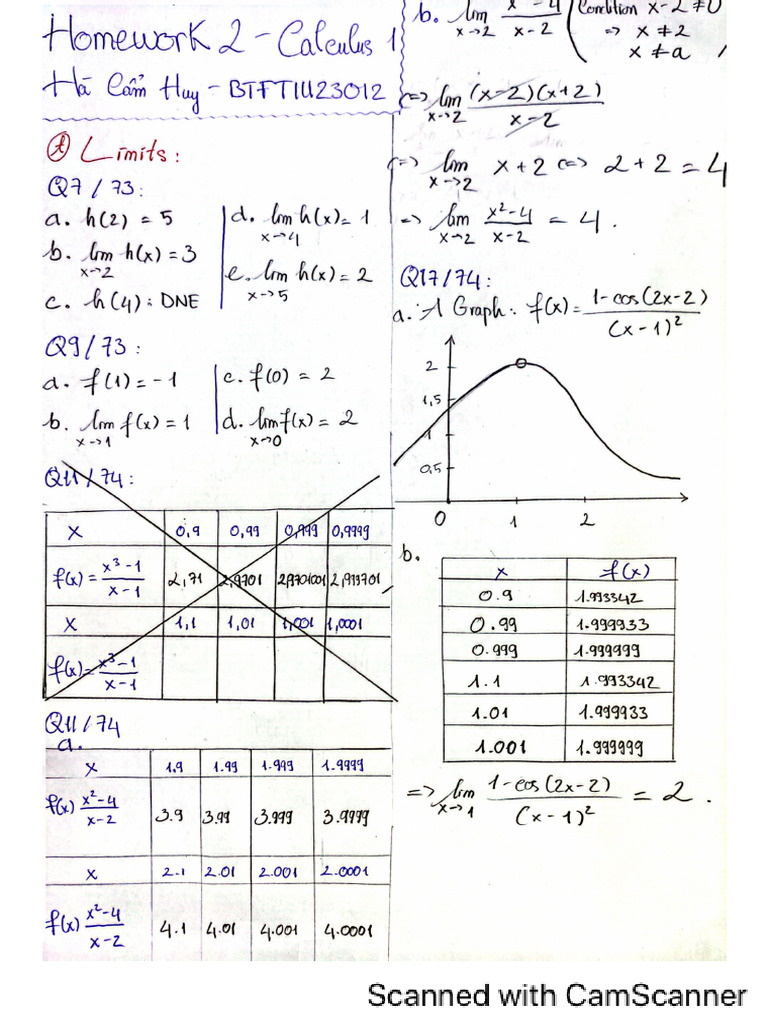 Homework 2 - Calculus 1
Hà Cẩm Huy - BTFTIU23012
* Limits:
Q7 / 73:
a. h(2) = 5
b. lim h(x) = 3
x->2
c. h(4): DNE
d. lim h(x) = 1
x->4
e. lim h(x) = 2
x->5
Q9 / 73:
a. f(1) = -1
b. lim f(x) = 1
x->1
c. f(0) = 2
d. lim f(x) = 2
x->0
Q11 / 74:
x 0,9 0,99 0,999 0,9999
f(x) = x³-1 / x-1 2,71 2,9701 2,9701001 2,999701
x 1,1 1,01 1,001 1,0001
f(x) = x³-1 / x-1
Q11 / 74
a.
x 1.9 1.99 1.999 1.9999
f(x) x²-4 / x-2 3.9 3.99 3.999 3.9999
x 2.1 2.01 2.001 2.0001
f(x) x²-4 / x-2 4.1 4.01 4.001 4.0001
b. lim x²-4 / x-2 (Condition x-2 ≠ 0
x->2 => x ≠ 2
x ≠ a
<=> lim (x-2)(x+2) / x-2
x->2
<=> lim x+2 <=> 2+2 = 4
x->2
=> lim x²-4 / x-2 = 4.
x->2
Q17/74:
a. A Graph: f(x) = 1-cos(2x-2) / (x-1)²
2
1,5
1
0,5
0 1 2
b.
x f(x)
0.9 1.993342
0.99 1.999933
0.999 1.999999
1.1 1.993342
1.01 1.999933
1.001 1.999999
=> lim 1-cos(2x-2) / (x-1)² = 2.
x->1
Scanned with CamScanner